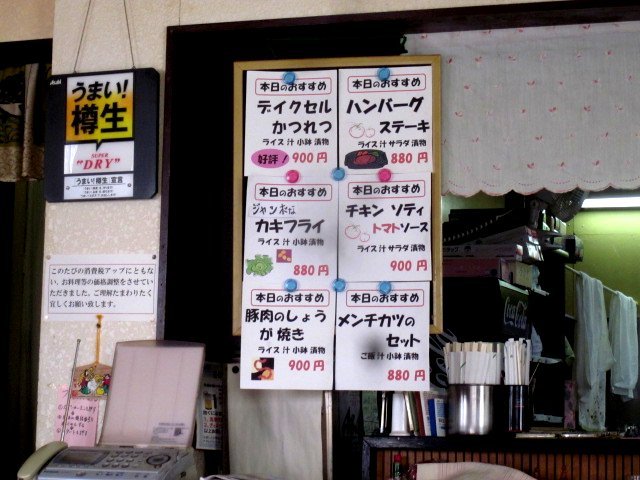 Asahi
うまい!
樽生
SUPER
"DRY"
うまい!樽生 宣言
このたびの消費税アップにともな
い、お料理等の価格調整をさせてい
ただきました。ご理解たまわりたく
宜しくお願い致します。
本日のおすすめ
デイクセル
かつれつ
ライス 汁 小鉢 漬物
好評!
900円
本日のおすすめ
ハンバーグ
ステーキ
ライス 汁 サラダ 漬物
880円
本日のおすすめ
ジャンボな
カキフライ
ライス 汁 小鉢 漬物
880円
本日のおすすめ
チキン ソティ
トマトソース
ライス 汁 サラダ 漬物
900円
本日のおすすめ
豚肉のしょう
が焼き
ライス 汁 小鉢 漬物
900円
本日のおすすめ
メンチカツの
セット
ご飯 汁 小鉢 漬物
880円
Coca-Cola